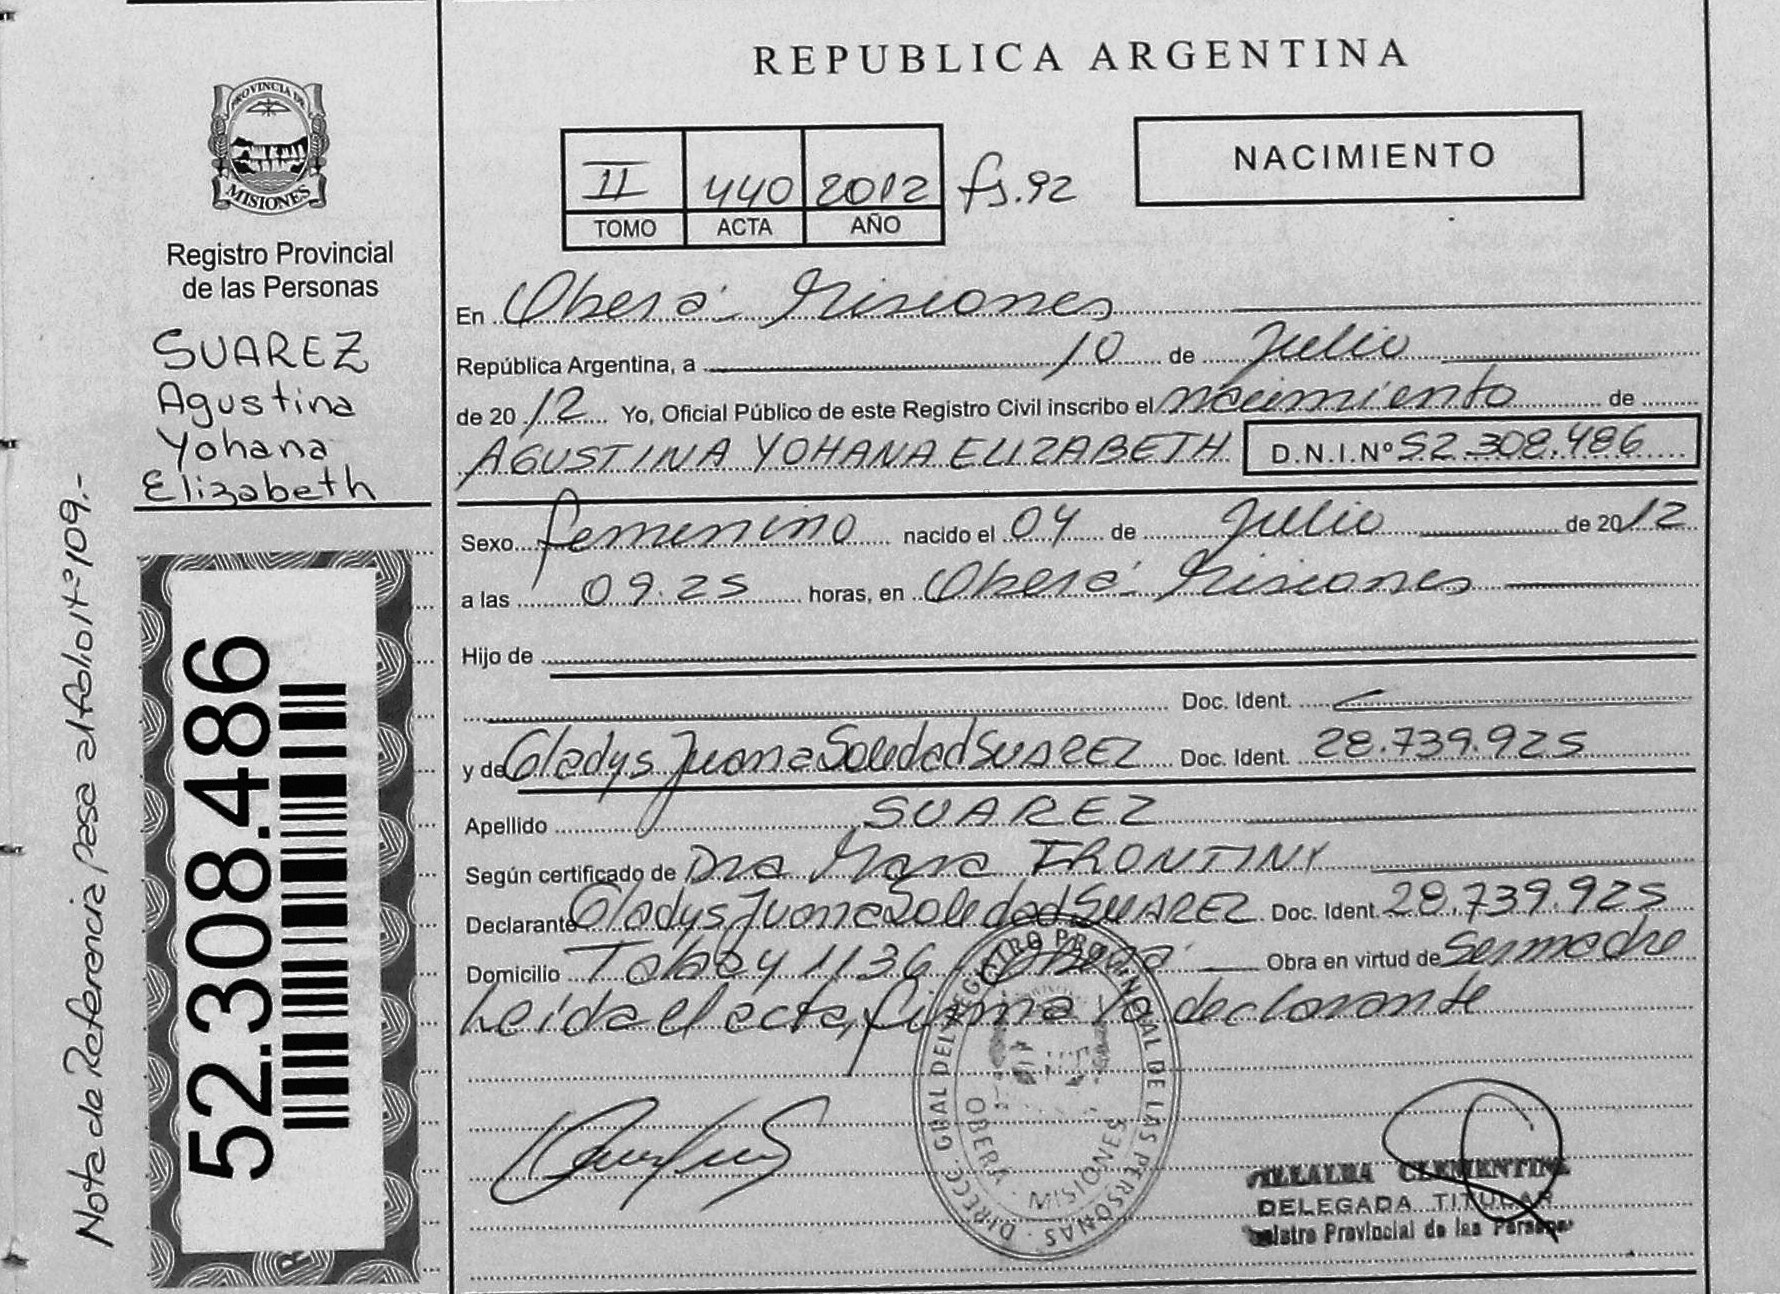 REPUBLICA ARGENTINA
PROVINCIA DE
MISIONES
Registro Provincial
de las Personas
SUAREZ
Agustina
Yohana
Elizabeth
Nota de Referencia pasa al folio Nº 109.-
52.308.486
II 440 2012 fs.92
TOMO ACTA AÑO
NACIMIENTO
En Oberá Misiones
República Argentina, a 10 de Julio
de 2012 Yo, Oficial Público de este Registro Civil inscribo el nacimiento de
AGUSTINA YOHANA ELIZABETH D.N.I.Nº 52.308.486
Sexo femenino nacido el 04 de Julio de 2012
a las 09.25 horas, en Oberá Misiones
Hijo de
Doc. Ident.
y de Gladys Juana Soledad SUAREZ Doc. Ident. 28.739.925
Apellido SUAREZ
Según certificado de Dra Mara
Declarante Gladys Juana Soledad SUAREZ Doc. Ident. 28.739.925
Domicilio 1136 Oberá Obra en virtud de Ser madre
Leída el acta, firma la declarante
DIRECC. GRAL DEL REGISTRO PROVINCIAL DE LAS PERSONAS
OBERA - MISIONES
VILLALBA CLEMENTINA
DELEGADA TITULAR
Registro Provincial de las Personas